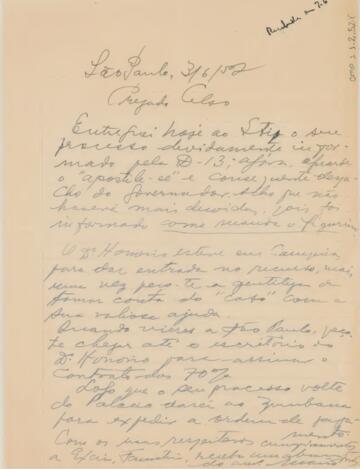 São Paulo, 3/6/52
Prezado Celso
Entreguei hoje ao o seu
processo devidamente infor-
mado pela D-13; agora, aguarde
o "apostile-se" e consequente despa-
cho do Governador. Acho que não
haverá mais duvidas, pois foi
informado como manda o figurino
O Dr Honorio esteve em Campinas
para dar entrada no recurso, mais
uma vez peço-te a gentileza de
tomar conta do "caso" com a
sua valiosa ajuda.
Quando vieres a São Paulo, peço
te chegar até o escritorio do
Dr Honorio para assinar o
Contrato dos 70%
Logo que o seu processo volte
do Palacio darei ao
para expedir a ordem de paga-
mento.
Com os meus respeitosos cumprimentos
a Exma. Familia, receba um abraço
do